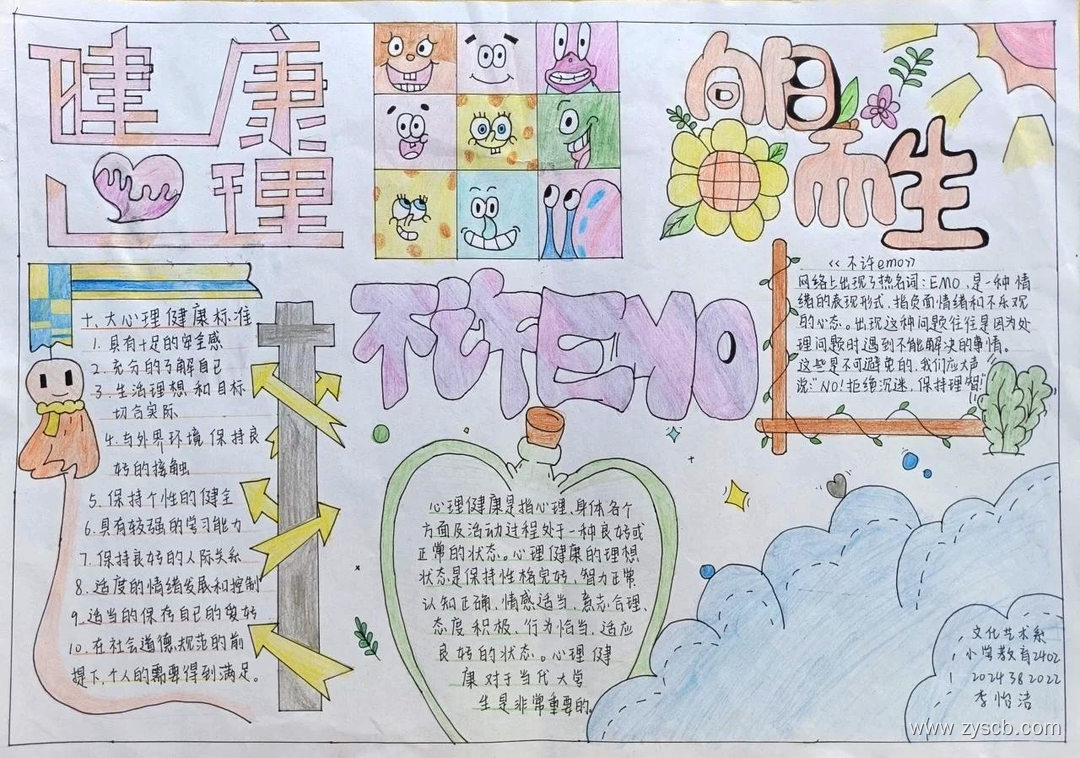 健康
心理
向日
而生
不许EMO
十、大心理健康标准
1. 具有十足的安全感
2. 充分的了解自己
3. 生活理想和目标
切合实际
4. 与外界环境保持良
好的接触
5. 保持个性的健全
6. 具有较强的学习能力
7. 保持良好的人际关系
8. 适度的情绪发展和控制
9. 适当的保存自己的爱好
10. 在社会道德规范的前
提下，个人的需要得到满足。
心理健康是指心理、身体各个
方面及活动过程处于一种良好或
正常的状态。心理健康的理想
状态是保持性格完好、智力正常、
认知正确、情感适当、意志合理、
态度积极、行为恰当、适应
良好的状态。心理健
康对于当代大学
生是非常重要的。
《不许emo》
网络上出现了热名词：EMO，是一种情
绪的表现形式，指负面情绪和不乐观
的心态。出现这种问题往往是因为处
理问题时遇到不能解决的事情。
这些是不可避免的，我们应大声
说："NO！拒绝沉迷，保持理智！"
文化艺术系
小学教育2402
2024382022
李怡洁
www.zyscb.com